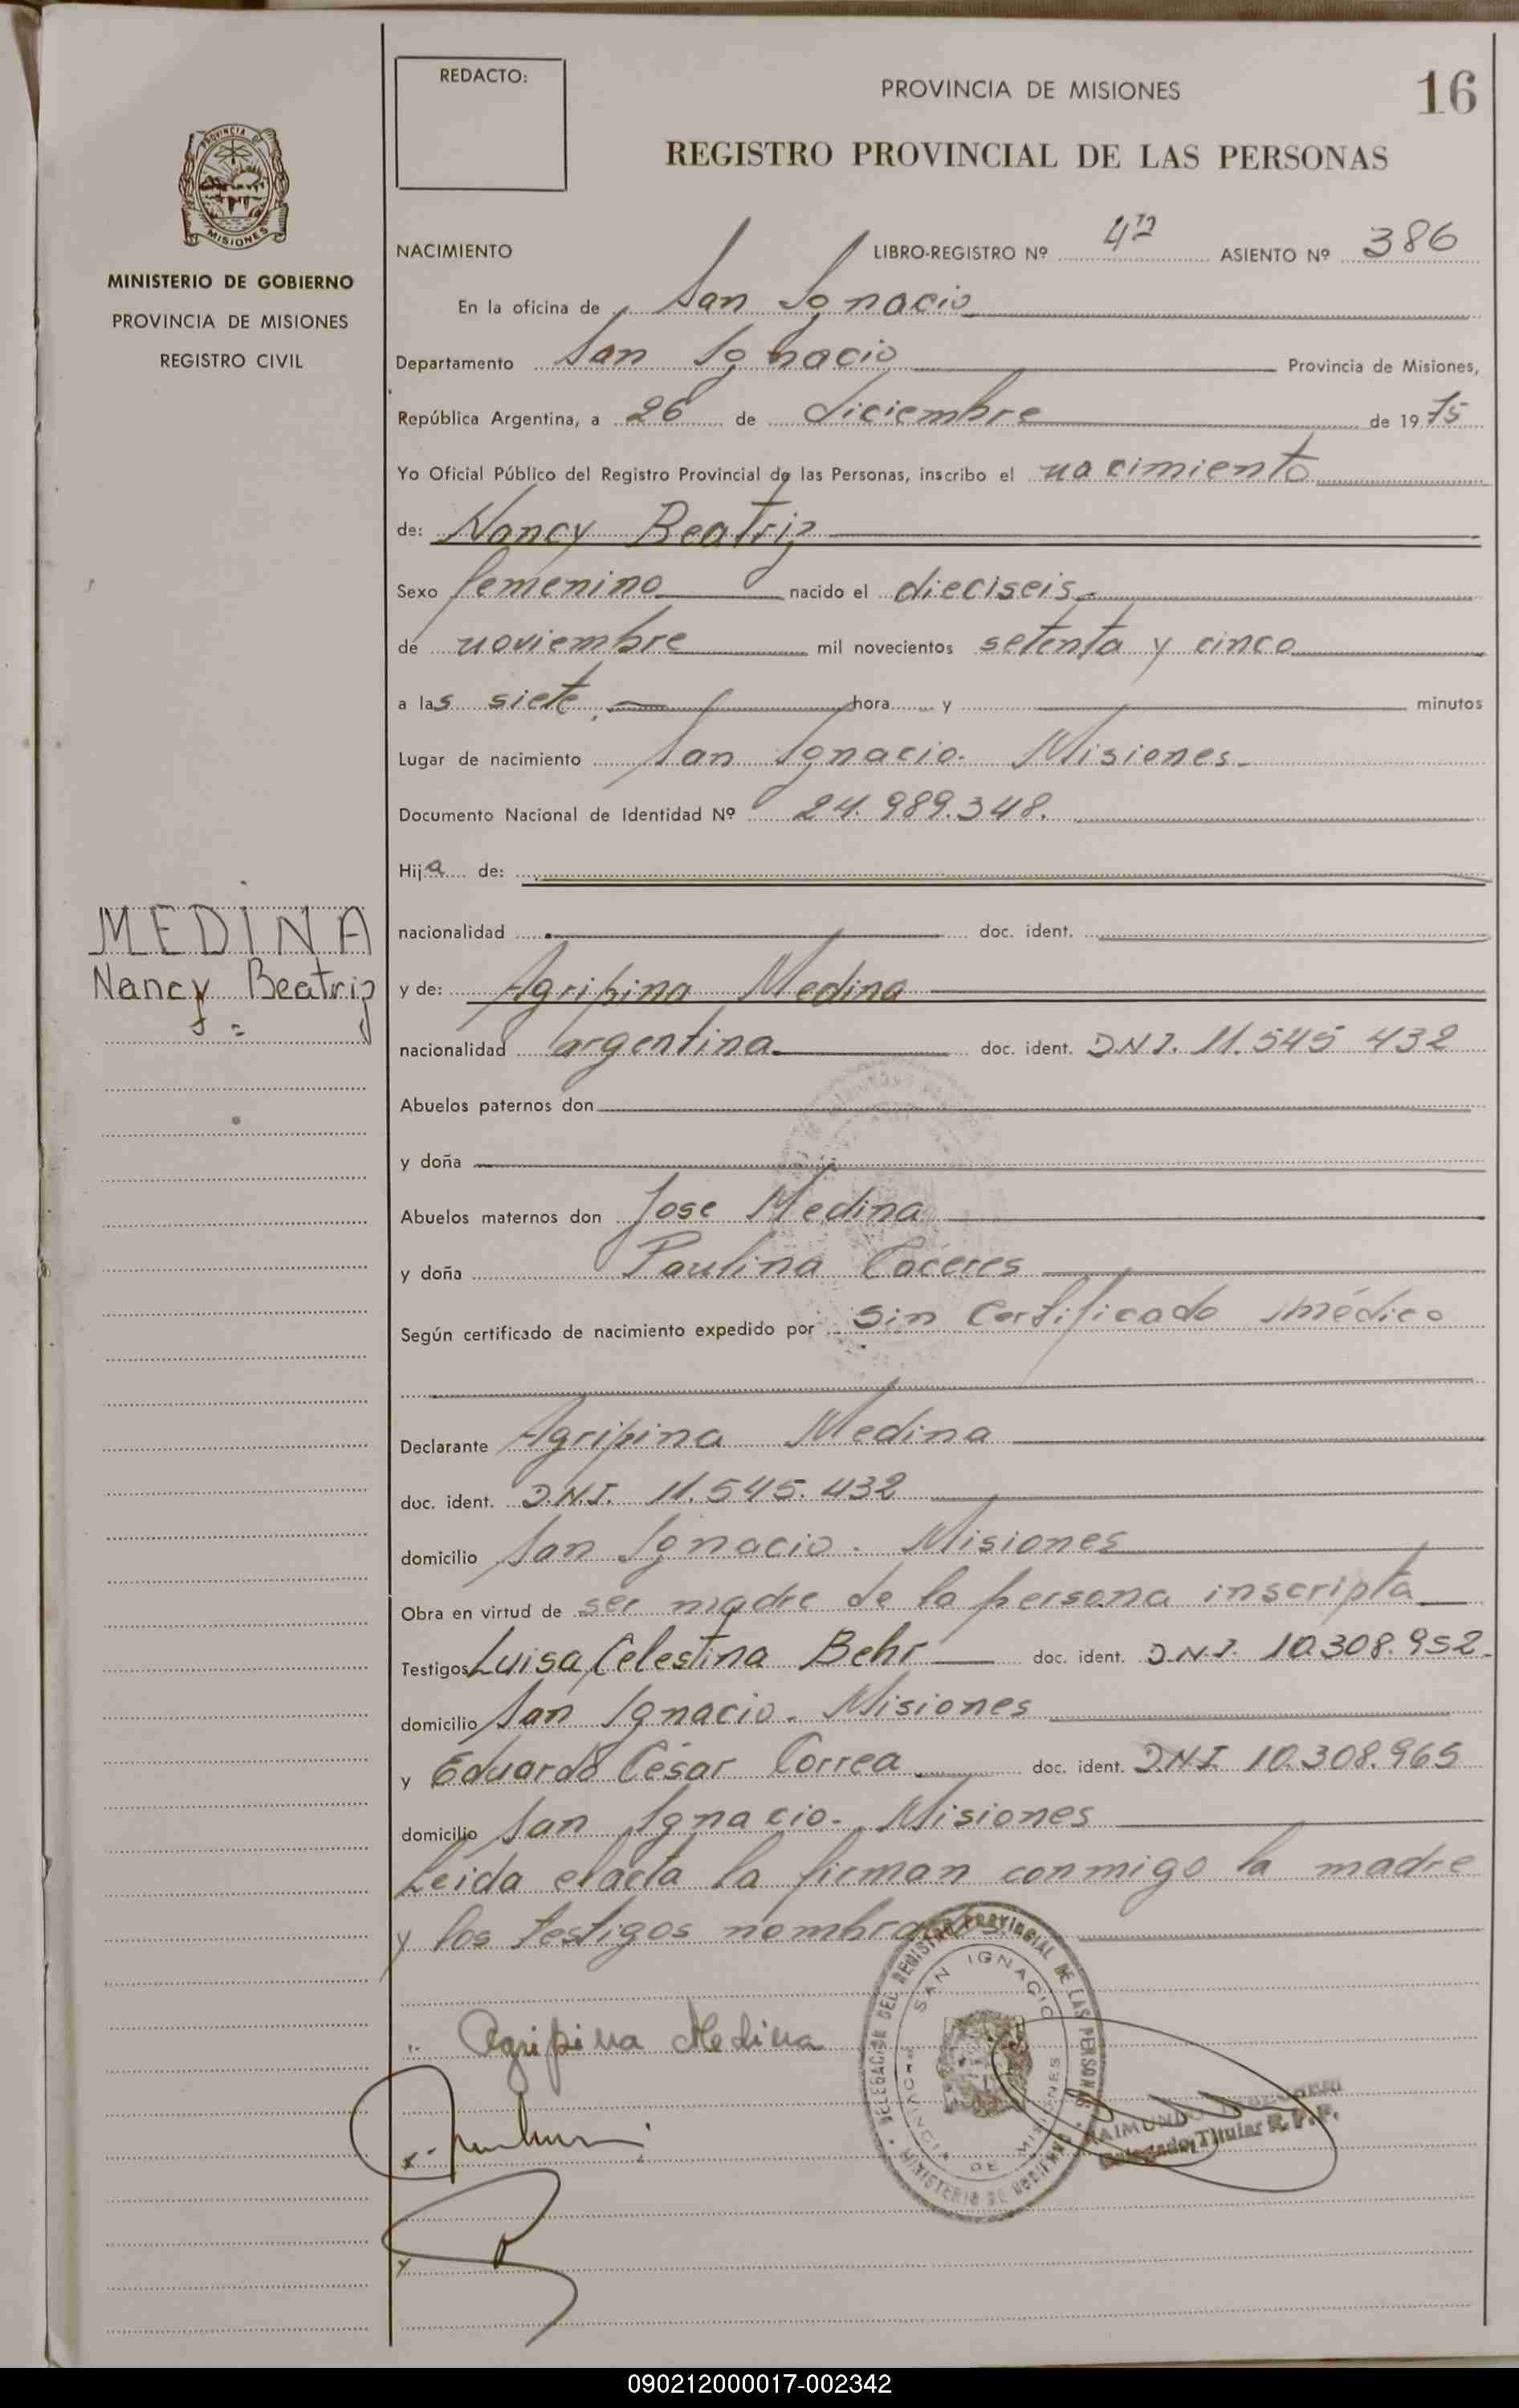 REDACTO:
PROVINCIA DE MISIONES
16
REGISTRO PROVINCIAL DE LAS PERSONAS
PROVINCIA DE
MISIONES
MINISTERIO DE GOBIERNO
PROVINCIA DE MISIONES
REGISTRO CIVIL
MEDINA
Nancy Beatriz
NACIMIENTO LIBRO-REGISTRO Nº ASIENTO Nº 386
En la oficina de San Ignacio
Departamento San Ignacio Provincia de Misiones,
República Argentina, a 26 de diciembre de 1975
Yo Oficial Público del Registro Provincial de las Personas, inscribo el nacimiento
de: Nancy Beatriz
Sexo femenino nacido el dieciseis
de noviembre mil novecientos setenta y cinco
a las siete hora y minutos
Lugar de nacimiento San Ignacio. Misiones.
Documento Nacional de Identidad Nº 24.989.348.
Hija de:
nacionalidad doc. ident.
y de: Agripina Medina
nacionalidad argentina doc. ident. D.N.I. 11.545 432
Abuelos paternos don
y doña
Abuelos maternos don Jose Medina
y doña Paulina Caceres
Según certificado de nacimiento expedido por sin certificado médico
Declarante Agripina Medina
doc. ident. D.N.I. 11.545.432
domicilio San Ignacio. Misiones
Obra en virtud de ser madre de la persona inscripta
Testigos Luisa Celestina Behr doc. ident. D.N.I. 10.308.952
domicilio San Ignacio. Misiones
y Eduardo César Correa doc. ident. D.N.I. 10.308.965
domicilio San Ignacio. Misiones
Leida el acta la firman conmigo la madre
y los testigos nombrados
Agripina Medina
DELEGACION DEL REGISTRO PROVINCIAL DE LAS PERSONAS
SAN IGNACIO
PROVINCIA DE MISIONES
MINISTERIO DE GOBIERNO
RAIMUNDO
Delegado Titular R.P.P.
090212000017-002342